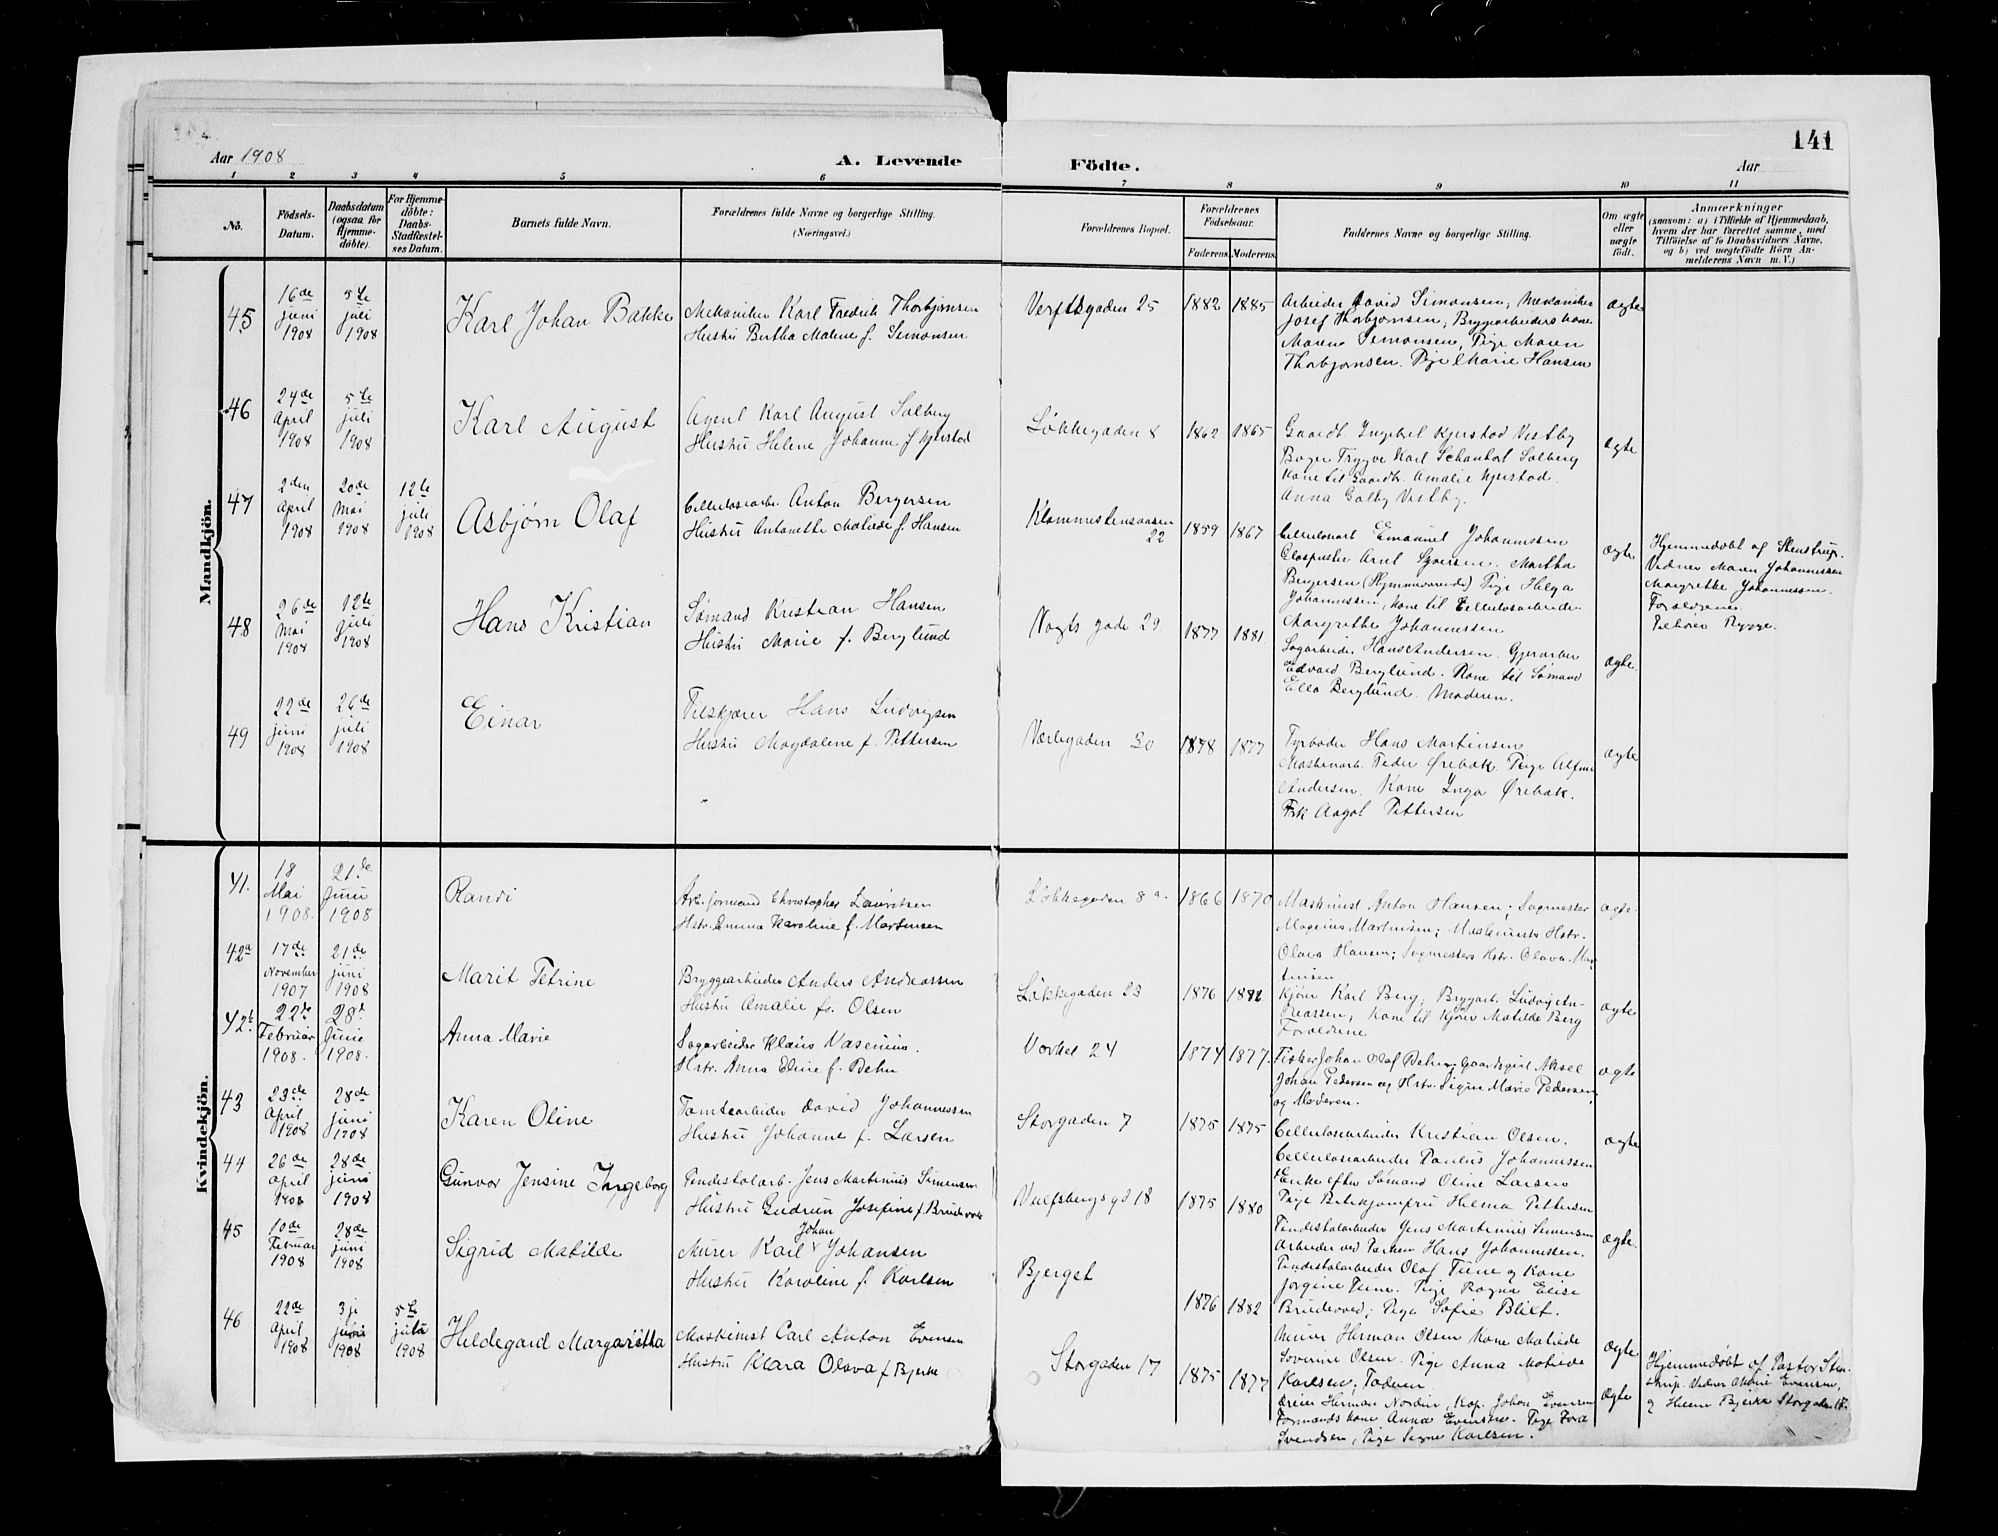 141
Aar 1908
A. Levende
Födte.
Aar
1 2 3 4 5 6 7 8 9 10 11
No.
Födsels-Datum.
Daabsdatum (ogsaa for Hjemmedöbte).
For Hjemmedöbte: Daabs-Stadfæstelses Datum.
Barnets fulde Navn.
Forældrenes fulde Navne og borgerlige Stilling.
(Næringsvei.)
Forældrenes Bopæl.
Forældrenes Födselsaar.
Faderens. Moderens.
Faddernes Navne og borgerlige Stilling.
Om ægte eller uægte födt.
Anmærkninger
(saasom: a) i Tilfælde af Hjemmedaab,
hvem der har forrettet samme, med
Tilföielse af to Daabsvidners Navne,
og b) ved uægtefödte Börn Anmelderens Navn m. V.)
Mandkjön.
45
16de juni 1908
5te juli 1908
Karl Johan Bakke
Mekaniker Karl Fredrik Thorbjørnsen
Hustru Bertha Malene f. Simonsen
Verftsgaden 25
1882 1885
Arbeider David Simonsen, Mekaniker
Josef Thorbjørnsen; Bryggarbeiders kone
Maren Simonsen, Pige Maren
Thorbjørnsen. Pige Marie Hansen
ægte
46
24de April 1908
5te juli 1908
Karl August
Agent Karl August Solberg
Hustru Helene Johanne f. Kjerstad
Løkkegaden 8
1862 1865
Gaardb. Kjerstad Vestby
Bager Trygve Karl Solberg
Kone til Gaardb. Amalie Kjerstad.
Anna Galby Vestby.
ægte
47
2den April 1908
20de Mai 1908
12te juli 1908
Asbjørn Olaf
Cellulosearb. Anton Bergersen
Hustru Antonette Matilde f. Hansen
22
1859 1867
Cellulosearb Emanuel Johannessen
Martha
Bergersen (Hjemmeværende) Pige Helga
Johannessen, Kone til Cellulosearbeider
Margrethe Johannessen
ægte
Hjemmedøbt af Stenstrup.
Vidner Maren Johannessen
Margrethe Johannessen.
Forældrene
Rygge.
48
26de Mai 1908
12te juli 1908
Hans Kristian
Sømand Kristian Hansen
Hustru Marie f. Berglund
Vogts gade 29
1877 1881
Sagarbeider Hans Andersen.
Edvard Berglund. Kone til Sømand
Ella Berglund. Moderen.
ægte.
49
22de juni 1908
26de juli 1908
Einar
Hans Ludvigsen
Hustru Magdalene f. Pettersen
Værlegaden 30
1878 1877
Fyrbøder Hans Martinsen
Maskinarb. Peder Ørebæk. Pige
Andersen. Kone Inga Ørebæk.
Frk Aagot Pettersen
ægte
Kvindekjön.
41.
18 Mai 1908.
21de Juni 1908
Randi
Arb.formand Christopher Lauritsen
Hstr. Emma Karoline f. Martinsen
Løkkegaden 8 a.
1866 1870
Maskinist Anton Hansen; Sagmester
Magnus Martinsen; Maskinists Hstr.
Olava Hansen; Sagmesters Hstr. Olava Martinsen
ægte.
42a
17de November 1907
21de juni 1908
Marit Petrine
Bryggearbeider Anders Andreassen
Hustru Amalie f. Olsen
Løkkegaden 23
1876 1882
Kjører Karl Berg; Bryggarb. Ludvig Andreassen; Kone til Kjører Matilde Berg
Forældrene
ægte
42b
22de Februar 1908.
28d Juni 1908.
Anna Marie
Sagarbeider Klaus Vasenius.
Hstr. Anna Eline f. Behn
24
1874 1877.
Fisker Johan Olaf Behn; Gaardsgut Aksel
Johan Pedersen og Hstr. Signe Marie Pedersen
og Moderen.
ægte
43
23de April 1908
28de juni 1908
Karen Oline
Tomtearbeider David Johannessen
Hustru Johanne f. Larsen
Storgaden 7
1875 1875
Cellulosearbeider Kristian Olsen.
Cellulosearbeider Paulus Johannessen
Enke efter Sømand Oline Larsen
Pige Butikjomfru Helma Pettersen
ægte
44
26de April 1908
28de juni 1908
Gunvor Jensine Ingeborg
Pindestolarb. Jens Martinius Simensen
Hustru Gudrun Josefine f. Brudevold
Vulfsbergs gd 18
1875 1880
Pindestolarbeider Jens Martinius Simensen
Arbeider ved Parken Hans Johannessen.
Pindestolarbeider Olaf Tune og Kone
Jorgine Tune. Pige Ragna Elise
Brudevold; Pige Sofie Blixt.
ægte.
45
10de Februar 1908
28de juni 1908
Sigrid Matilde
Murer Karl Johan Johansen
Hustru Karoline f. Karlsen
Bjerget
1876 1882
Murer Herman Olsen Kone Matilde
Severine Olsen. Pige Anna Matilde
Karlsen; Faderen
ægte
46
22de April 1908
3je juni 1908
5te juli 1908
Hildegard Margaretha
Maskinist Carl Anton Evensen
Hustru Klara Olava f Bjerke
Storgaden 17
1875 1877
Dreier Herman Nordin, Kap. Johan Evensen
Formands kone Anna Evensen. Pige Thora
Svendsen, Pige Signe Karlsen.
ægte
Hjemmedøbt af Pastor Stenstrup. Vidner Marie Evensen,
og Bjerke Storgaden 17.